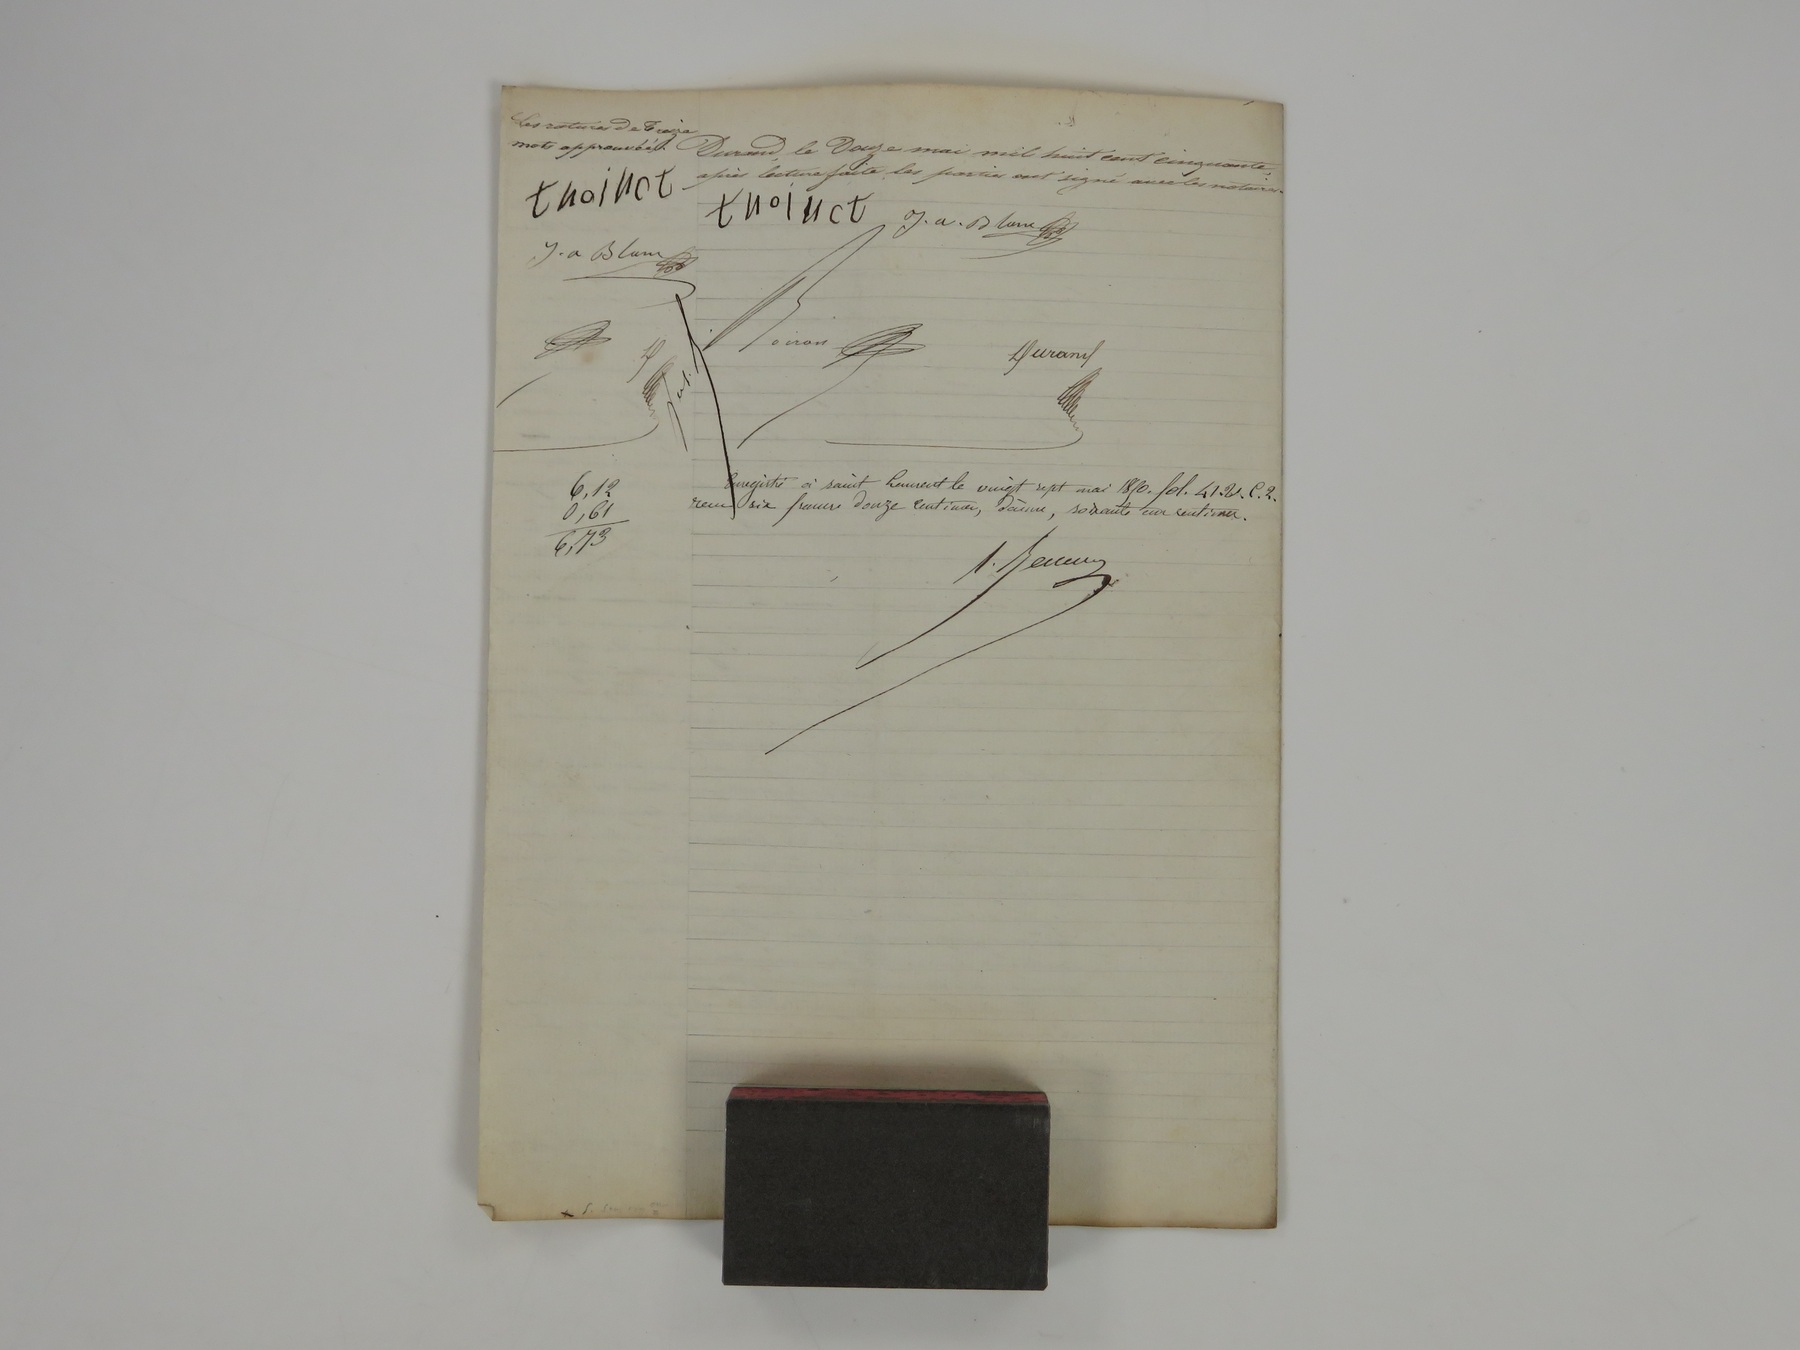 Les ratures de treize
mots approuvées.
Durand, le Douze mai mil huit cent cinquante,
après lecture faite, les parties ont signé avec les notaires.
thoinct
thoinct
J. a. Blanc
J. a Blanc
Voiron
Durand
6,12
0,61
6,73
Enregistré à saint Laurent le vingt sept mai 1850. fol. 41. V. C. 2.
reçu six francs douze centimes, décime, soixante un centimes.